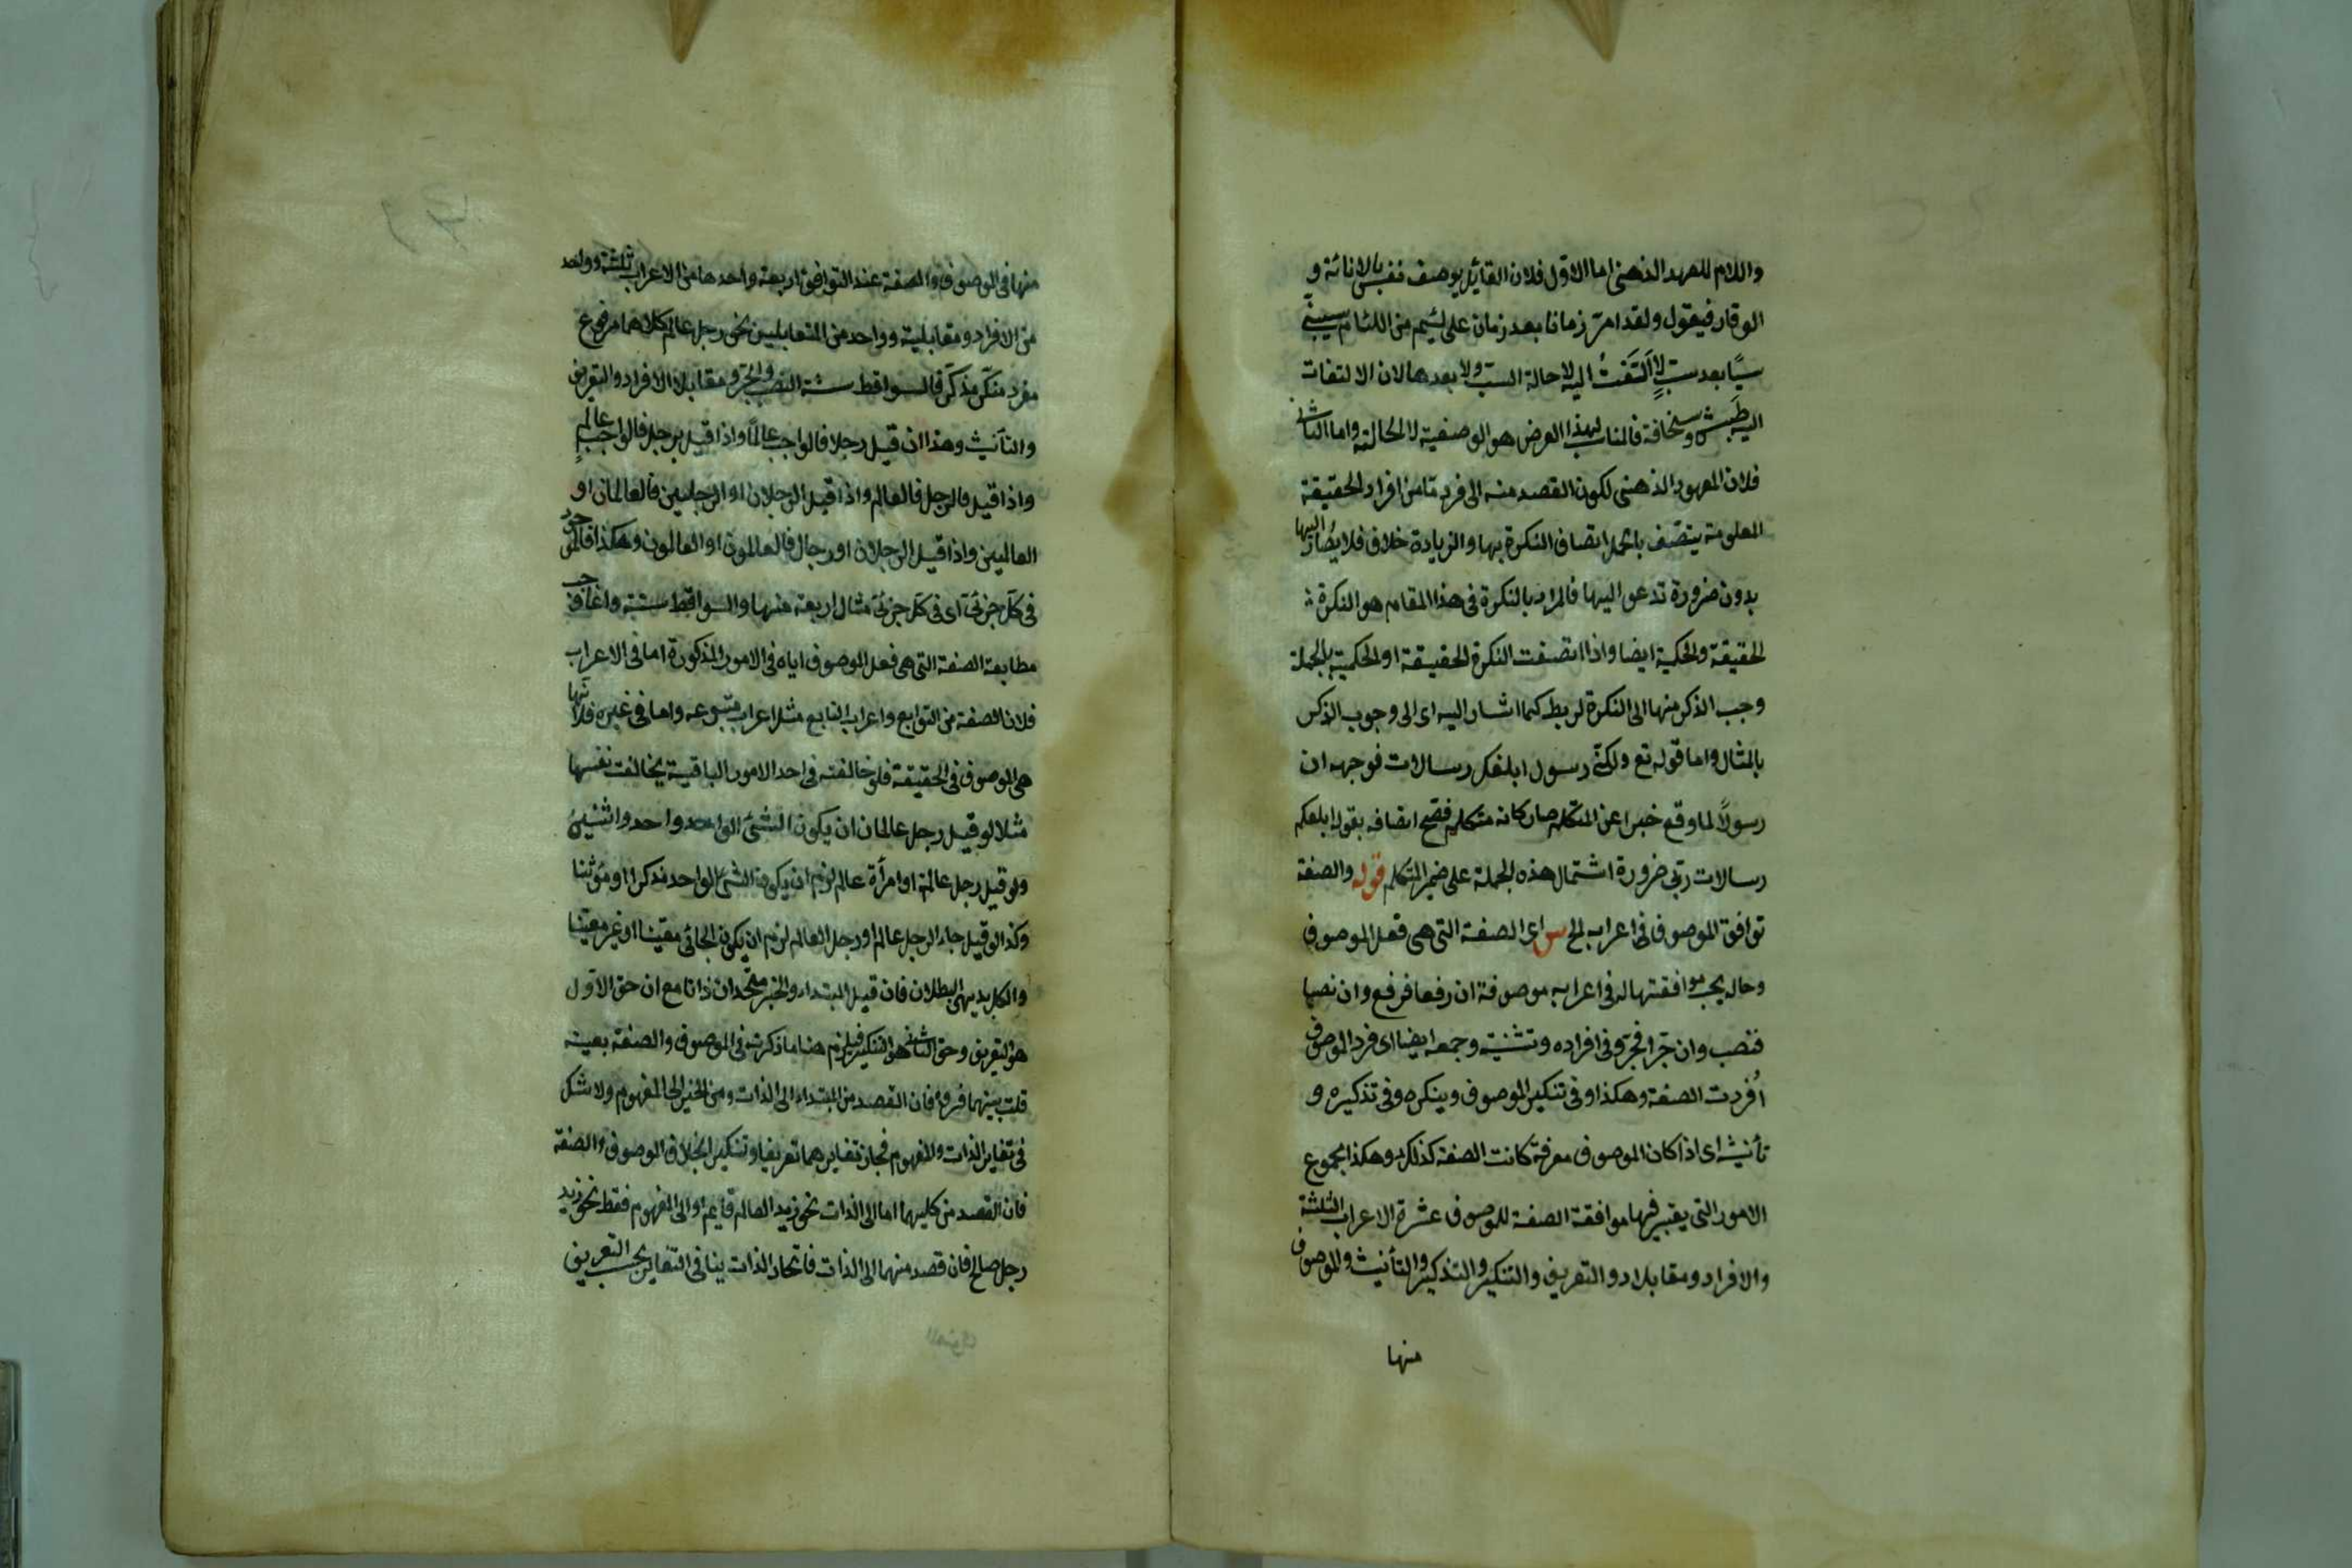 واللام للعهد الذهنى اما الاول فلان القائل يوصف نفسه بالاناءة و
الوقار فيقول ولقد امرّ زمانا بعد زمان على لئيم من اللئام يسبنى
سبًا بعد سبٍ لا اَلتَفتُ اليه لا حالة السب ولا بعدها لان الالتفات
اليه طَيش وسخافة فالمناسب لهذا الغرض هو الوصفية لا الحالية واما الثانى
فلان المعهود الذهنى لكون القصد منه الى فرد ما من افراد الحقيقة
المعلومة يتصف بالجملة اتصاف النكرة بها والزيادة خلاف فلا يصُار اليها
بدون ضرورة تدعو اليها فالمراد بالنكرة فى هذا المقام هو النكرة
الحقيقة والحكمية ايضا واذا اتصفت النكرة الحقيقة او الحكمية بالجملة
وجب الذكر منها الى النكرة لربط كما اشار اليه اى الى وجوب الذكر
بالمثال واما قوله تع ولكنى رسول ابلغكم رسالات فوجهه ان
رسولاً لما وقع خبرا عن المتكلم صار كانه متكلم فصح اتصافه بقوله ابلغكم
رسالات ربى ضرورة اشتمال هذه الجملة على ضمير المتكلم قوله والصفة
توافق الموصوف فى اعرابه الخ س اى الصفة التى هى فعل الموصوف
وحاله يجب موافقتها له فى اعرابه موصوفة ان رفعا فرفع وان نصبا
فنصب وان جرّا فجرّ وفى افراده وتثنيته وجمعه ايضا اى فرد الموصوف
اُفردت الصفة وهكذا وفى تنكير الموصوف وينكره وفى تذكيره و
تأنيثه اى اذا كان الموصوف معرفة كانت الصفة كذلك وهكذا مجموع
الامور التى يعتبر فيها موافقة الصفة للموصوف عشرة الاعراب الثلثة
والافراد ومقابلاه والتعريف والتنكير والتذكير والتأنيث والموصوف
منها
منها فى الموصوف والصفة عند التوافق اربعة واحدها من الاعراب ثلثة وواحد
من الافراد ومقابليه وواحد من المتقابلين نحو رجل عالم كلاهما مرفوع
مفرد منكّر مذكّر فالسواقط ستة النصب والجرّ ومقابلا الافراد والتعريف
والتأنيث وهذا ان قيل رجلا فالواجب عالمًا واذا قيل برجل فالواجب عالمٍ
واذا قيل فالرجل فالعالم واذا قيل الرجلان او الرجلين فالعالمان او
العالمين واذا قيل الرجلان او رجال فالعالمون او العالمون وهكذا فالموجود
فى كل جزئى اى فى كل جزئى مثال اربعة منها والسواقط ستة وانما وجب
مطابقة الصفة التى هى فعل الموصوف اياه فى الامور المذكورة اما فى الاعراب
فلان الصفة من التوابع واعراب التابع مثل اعراب متبوعه واما فى غيره فلانها
هى الموصوف فى الحقيقة فلو خالفته فى احد الامور الباقية يخالفت نفسها
مثلا لو قيل رجل عالمان ان يكون الشئ الواحد واحد واثنين
ولو قيل رجل عالمة او امرأة عالم لزم ان يكون الشئ الواحد مذكرا او مؤنثا
وكذا لو قيل جاء الرجل عالم او رجل العالم لزم ان يكون الجائى معيّنا او غير معيّنا
والكل بديهى البطلان فان قيل المبتداء والخبر متحدان ذاتا مع ان حق الاول
هو التعريف وحق الثانى هو التنكير فيلزم هنا ما ذكرته فى الموصوف والصفة بعينه
قلت بينهما فرق فان القصد من المبتداء الى الذات ومن الخبر الى المفهوم ولا شك
فى تغاير الذات والمفهوم فجاز تغايرهما تعريفا وتنكيرا بخلاف الموصوف والصفة
فان القصد من كليهما اما الى الذات نحو زيد العالم قايم او الى المفهوم فقط نحو زيد
رجل صالح فان قصد منهما الى الذات فاتحاد الذات ينافى التغاير بحسب التعريف